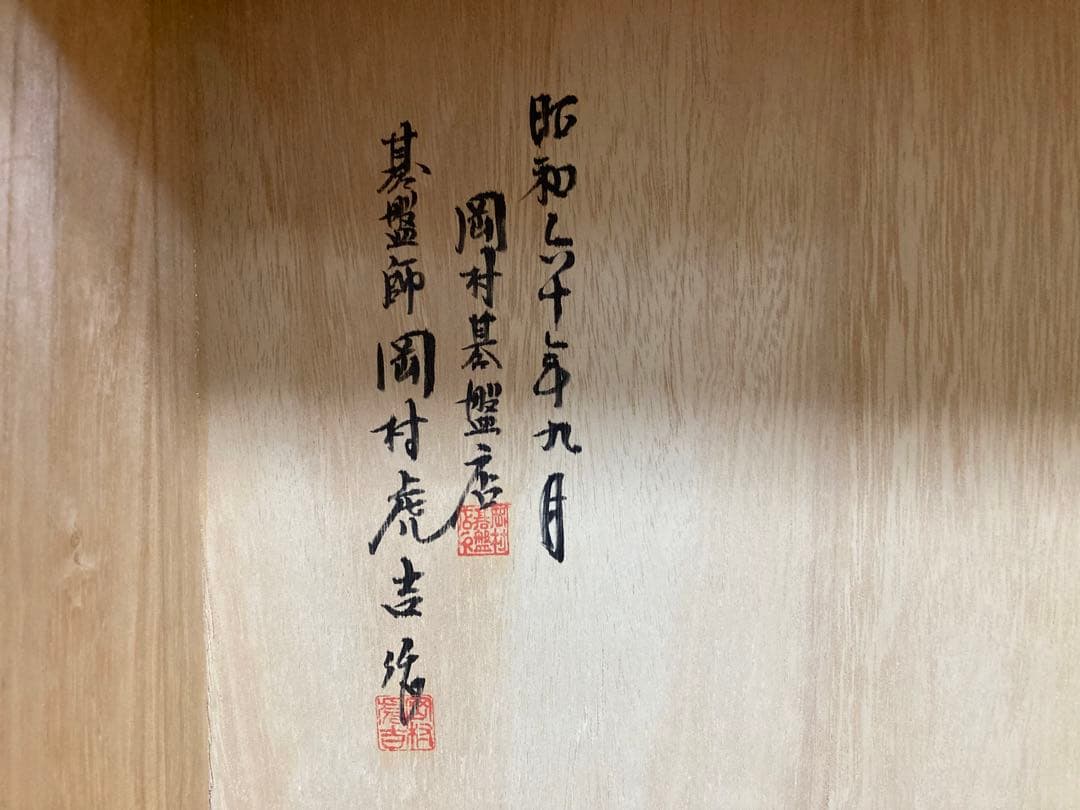 昭和六十年九月
岡村碁盤店
碁盤師岡村虎吉作
岡村
碁盤
岡村
虎吉